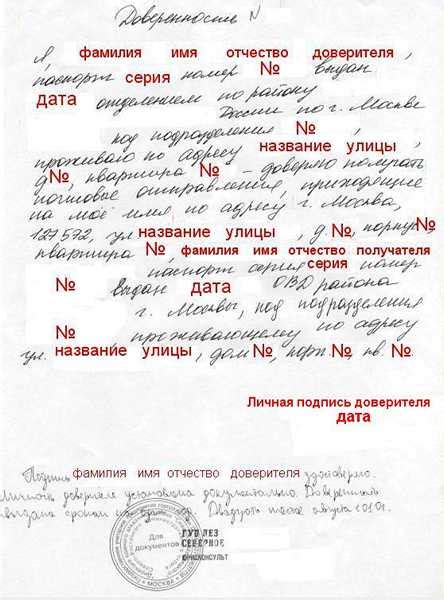 Доверенность N
Я, фамилия имя отчество доверителя,
паспорт серия номер № выдан
дата отделением по району
России по г. Москве
код подразделения №,
проживаю по адресу название улицы,
д №, квартира № - доверяю получать
почтовые отправления, приходящие
на моё имя по адресу г. Москва,
127572, ул название улицы, д. №, корпус №
квартира №, фамилия имя отчество получателя
паспорт серия серия номер
№ выдан дата ОВД района
г. Москвы, код подразделения
№, проживающему по адресу
ул. название улицы, дом №, корп № кв. №.
Личная подпись доверителя
дата
Подпись фамилия имя отчество доверителя удостоверяю.
Личность доверителя установлена документально. Доверенность
выдана сроком на
Для
документов
МОСКВА
ГУП ДЕЗ
СЕВЕРНОЕ
ЮРИСКОНСУЛЬТ